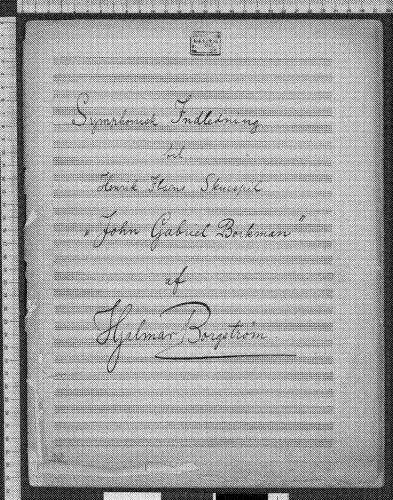 Symfonisk Indledning
til
Henrik Ibsens Skuespil
„John Gabriel Borkman"
af
Hjalmar Borgstrøm